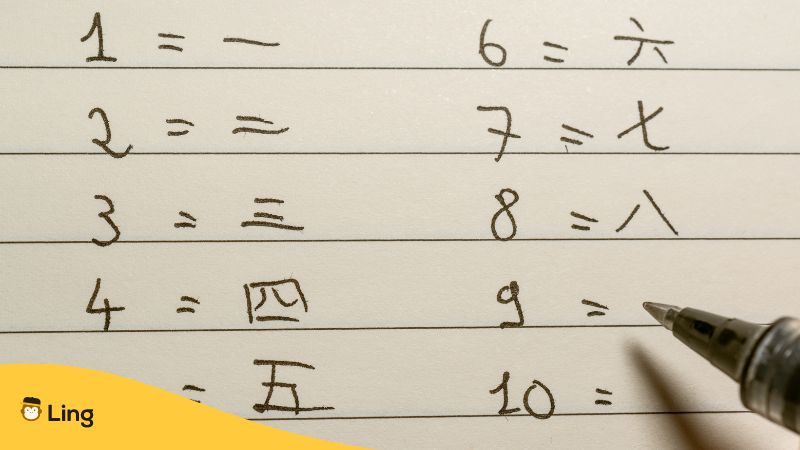 1 = 一
2 = 二
3 = 三
4 = 四
= 五
6 = 六
7 = 七
8 = 八
9 =
10 =
Ling